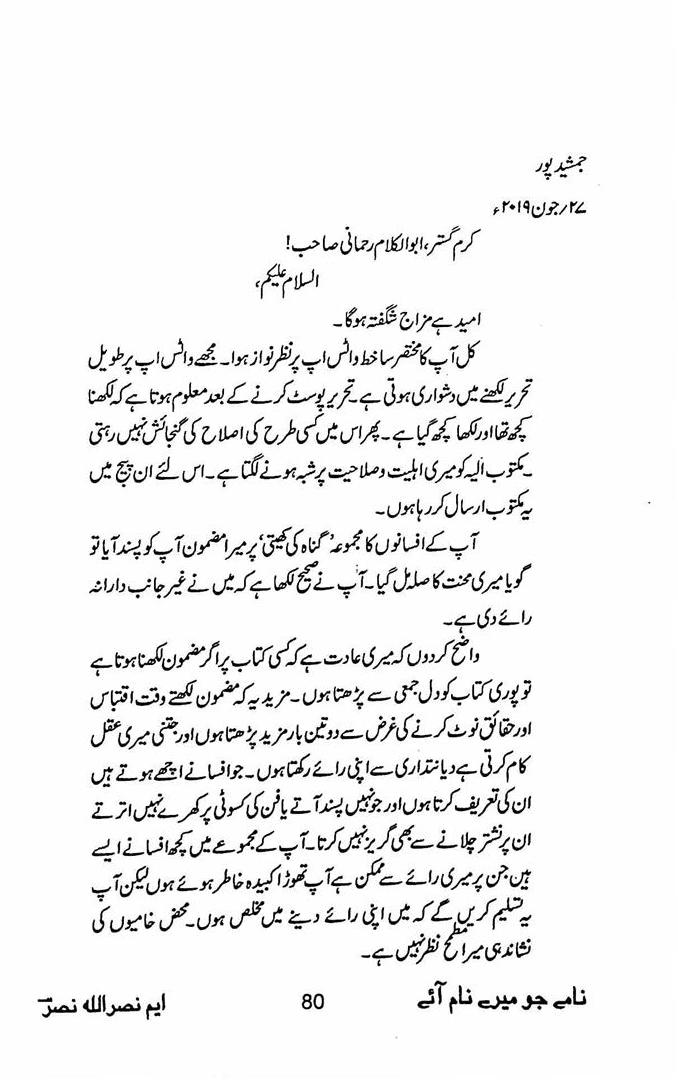 جمشید پور
۲۷/جون ۲۰۱۹ء
کرم گستر، ابوالکلام رحمانی صاحب!
السلام علیکم،
امید ہے مزاج شگفتہ ہوگا۔
کل آپ کا مختصر سا خط واٹس اپ پر نظر نواز ہوا۔ مجھے واٹس اپ پر طویل
تحریر لکھنے میں دشواری ہوتی ہے۔ تحریر پوسٹ کرنے کے بعد معلوم ہوتا ہے کہ لکھنا
کچھ تھا اور لکھا کچھ گیا ہے۔ پھر اس میں کسی طرح کی اصلاح کی گنجائش نہیں رہتی
۔ مکتوب الیہ کو میری اہلیت و صلاحیت پر شبہ ہونے لگتا ہے۔ اس لئے ان پیج میں
یہ مکتوب ارسال کر رہا ہوں۔
آپ کے افسانوں کا مجموعہ ’گناہ کی کھیتی‘ پر میرا مضمون آپ کو پسند آیا تو
گویا میری محنت کا صلہ مل گیا۔ آپ نے صحیح لکھا ہے کہ میں نے غیر جانب دارانہ
رائے دی ہے۔
واضح کردوں کہ میری عادت ہے کہ کسی کتاب پر اگر مضمون لکھنا ہوتا ہے
تو پوری کتاب کو دل جمعی سے پڑھتا ہوں۔ مزید یہ کہ مضمون لکھتے وقت اقتباس
اور حقائق نوٹ کرنے کی غرض سے دو تین بار مزید پڑھتا ہوں اور جتنی میری عقل
کام کرتی ہے دیانتداری سے اپنی رائے رکھتا ہوں۔ جو افسانے اچھے ہوتے ہیں
ان کی تعریف کرتا ہوں اور جو نہیں پسند آتے یا فن کی کسوٹی پر کھرے نہیں اترتے
ان پر نشتر چلانے سے بھی گریز نہیں کرتا۔ آپ کے مجموعے میں کچھ افسانے ایسے
ہیں جن پر میری رائے سے ممکن ہے آپ تھوڑا کبیدہ خاطر ہوئے ہوں لیکن آپ
یہ تسلیم کریں گے کہ میں اپنی رائے دینے میں مخلص ہوں۔ محض خامیوں کی
نشاندہی میرا مطمح نظر نہیں ہے۔
نامے جو میرے نام آئے 80 ایم نصر اللہ نصرؔ